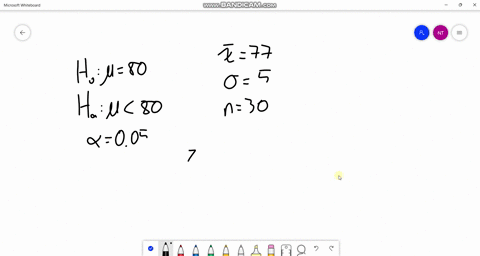 Microsoft Whiteboard
www.BANDICAM.com
NT
H₀: μ = 80
Hₐ: μ < 80
α = 0.05
x̄ = 77
σ = 5
n = 30